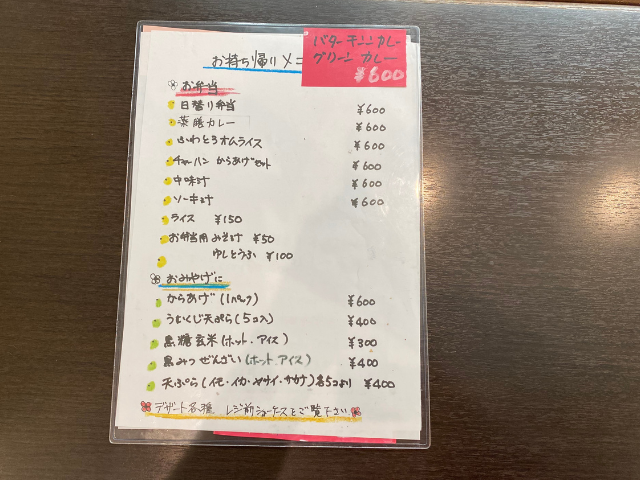 お持ち帰りメニ
バターチキンカレー
グリーン カレー
¥600
お弁当
日替り弁当 ¥600
薬膳カレー ¥600
ふわとろオムライス ¥600
チャーハン からあげセット ¥600
中味汁 ¥600
ソーキ汁 ¥600
ライス ¥150
お弁当用 みそ汁 ¥50
ゆしとうふ ¥100
おみやげに
からあげ (1パック) ¥600
うむくじ天ぷら (5コ入) ¥400
黒糖玄米 (ホット.アイス) ¥300
黒みつ ぜんざい (ホット.アイス) ¥400
天ぷら (イモ・イカ・ヤサイ・サカナ) 各5コより ¥400
デザート各種 レジ前ショーケースをご覧下さい